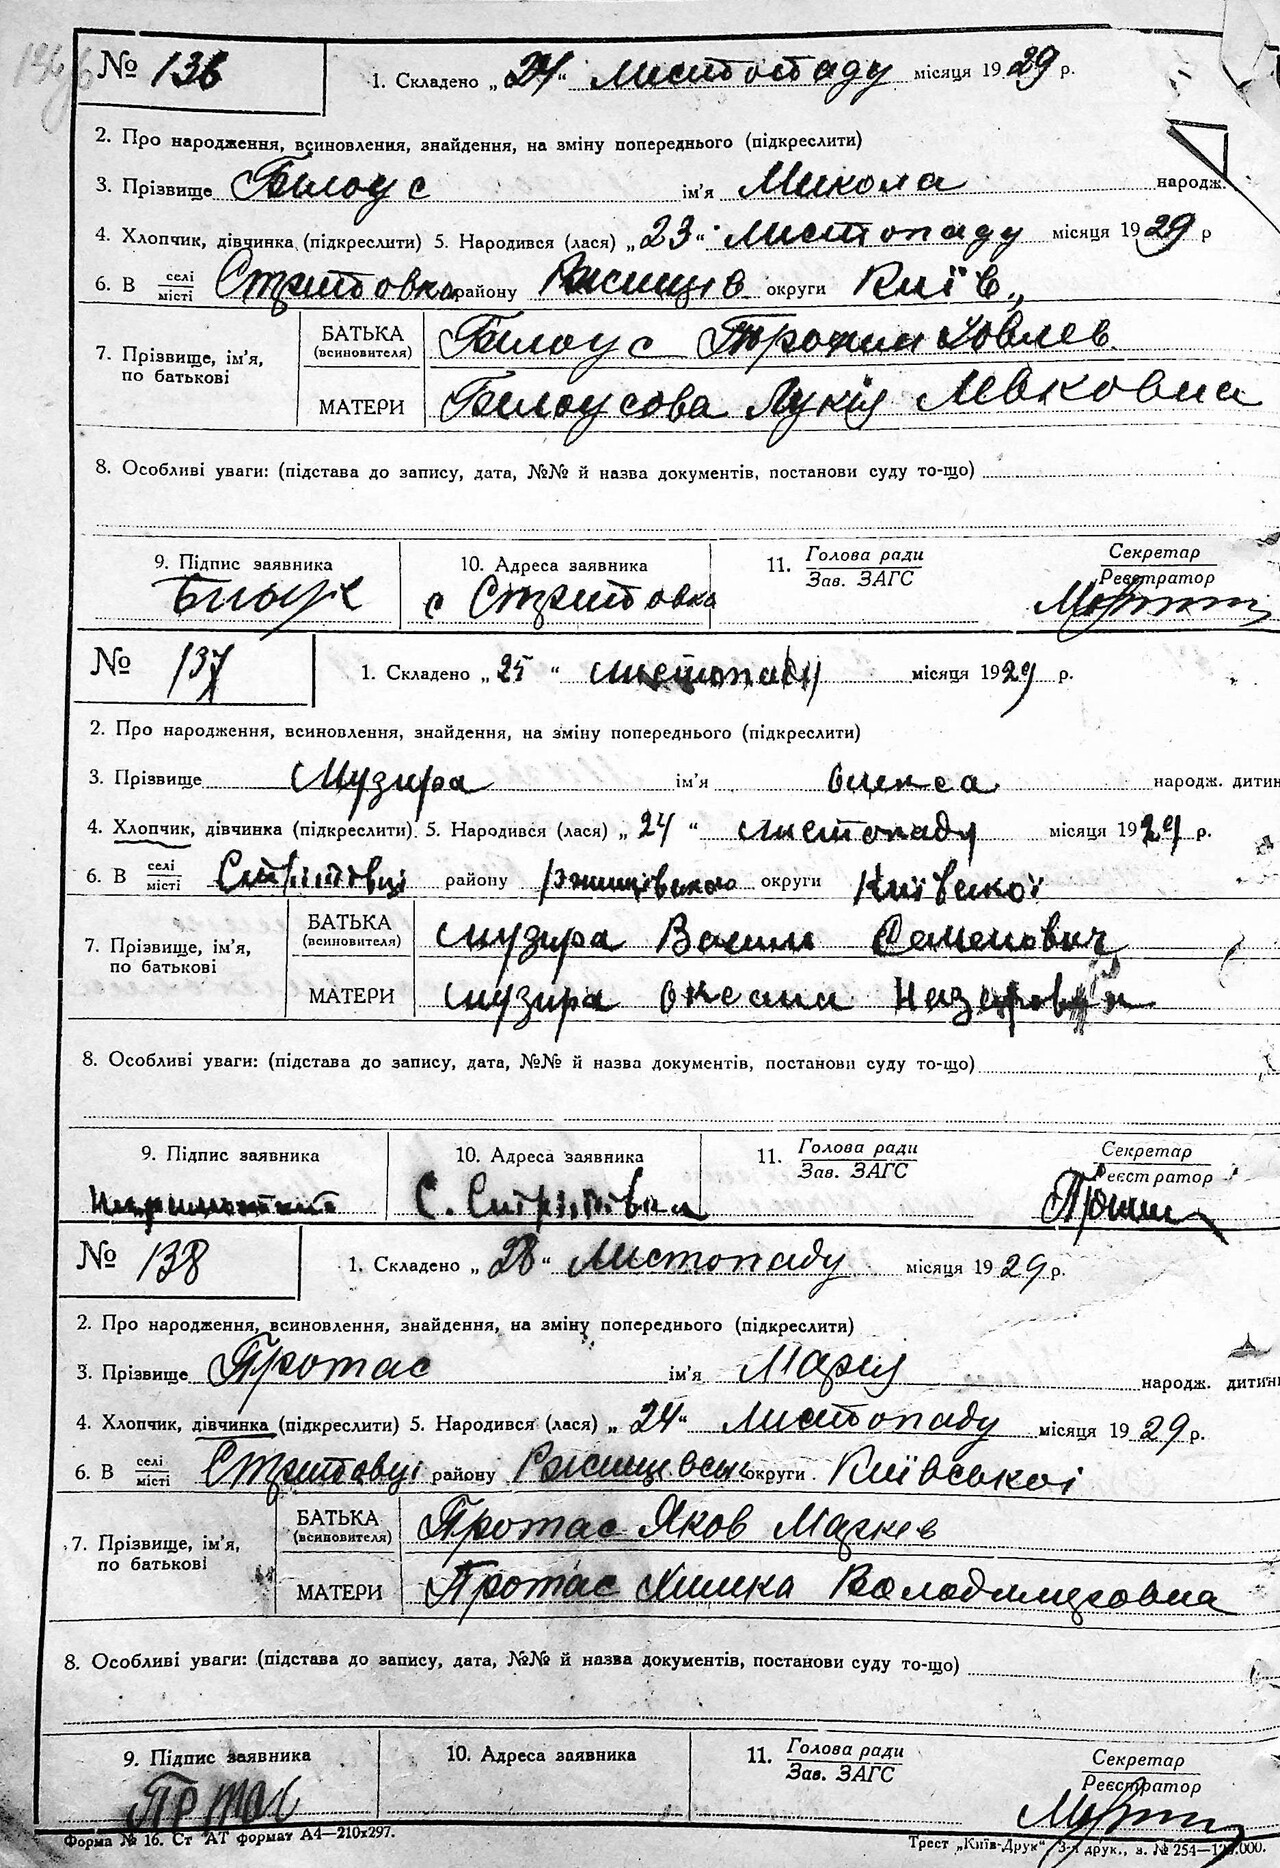 № 136
1. Складено „24“ листопаду місяця 1929 р.
2. Про народження, всиновлення, знайдення, на зміну попереднього (підкреслити)
3. Прізвище Білоус ім'я Микола народж.
4. Хлопчик, дівчинка (підкреслити) 5. Народився (лася) „23“ листопаду місяця 1929 р
6. В селі/місті Стритовка району Ржищів округи Київ.,
7. Прізвище, ім'я, по батькові
БАТЬКА (всиновителя) Білоус Трохим Іовлев.
МАТЕРИ Білоусова Лукія Левковна
8. Особливі уваги: (підстава до запису, дата, №№ й назва документів, постанови суду то-що)
9. Підпис заявника 10. Адреса заявника 11. Голова ради/Зав. ЗАГС Секретар/Реєстратор
с Стритовка
№ 137
1. Складено „25“ листопаду місяця 1929 р.
2. Про народження, всиновлення, знайдення, на зміну попереднього (підкреслити)
3. Прізвище Музира ім'я Олекса народж. дитин
4. Хлопчик, дівчинка (підкреслити) 5. Народився (лася) „24“ листопаду місяця 1929 р.
6. В селі/місті Стрітовці району Ржищівського округи Київської
7. Прізвище, ім'я, по батькові
БАТЬКА (всиновителя) Музира Василь Семенович
МАТЕРИ Музира Оксана
8. Особливі уваги: (підстава до запису, дата, №№ й назва документів, постанови суду то-що)
9. Підпис заявника 10. Адреса заявника 11. Голова ради/Зав. ЗАГС Секретар/Реєстратор
С. Стрітовка
№ 138
1. Складено „28“ Листопаду місяця 1929 р.
2. Про народження, всиновлення, знайдення, на зміну попереднього (підкреслити)
3. Прізвище Протас ім'я Марія народж. дитини
4. Хлопчик, дівчинка (підкреслити) 5. Народився (лася) „24“ Листопаду місяця 1929 р.
6. В селі/місті Стритовці району Ржищевськ округи Київської
7. Прізвище, ім'я, по батькові
БАТЬКА (всиновителя) Протас Яков Маркев
МАТЕРИ Протас Химка Володимировна
8. Особливі уваги: (підстава до запису, дата, №№ й назва документів, постанови суду то-що)
9. Підпис заявника 10. Адреса заявника 11. Голова ради/Зав. ЗАГС Секретар/Реєстратор
Протас
Форма № 16. Ст АТ формат А4—210x297. Трест „Київ-Друк“, 3-я друк., з. № 254—125.000.